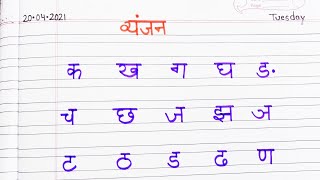 20.04.2021 Tuesday
व्यंजन
क ख ग घ ड.
च छ ज झ ञ
ट ठ ड ढ ण